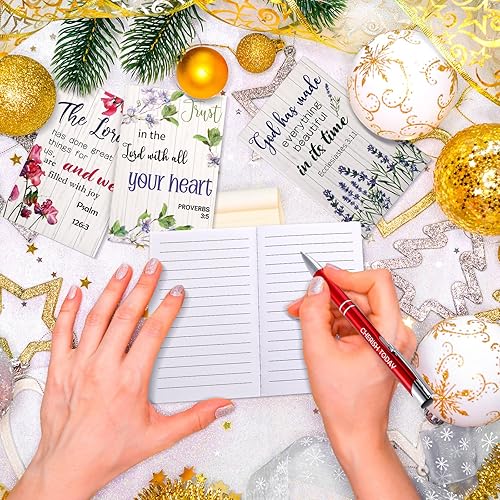 The Lord
has done great
things for
us,
and we
are
filled with joy
Psalm
126:3
Trust
in the
Lord with all
your heart
PROVERBS
3:5
God has made
everything
beautiful
in its time
Ecclesiastes 3:11
CHERISH TODAY